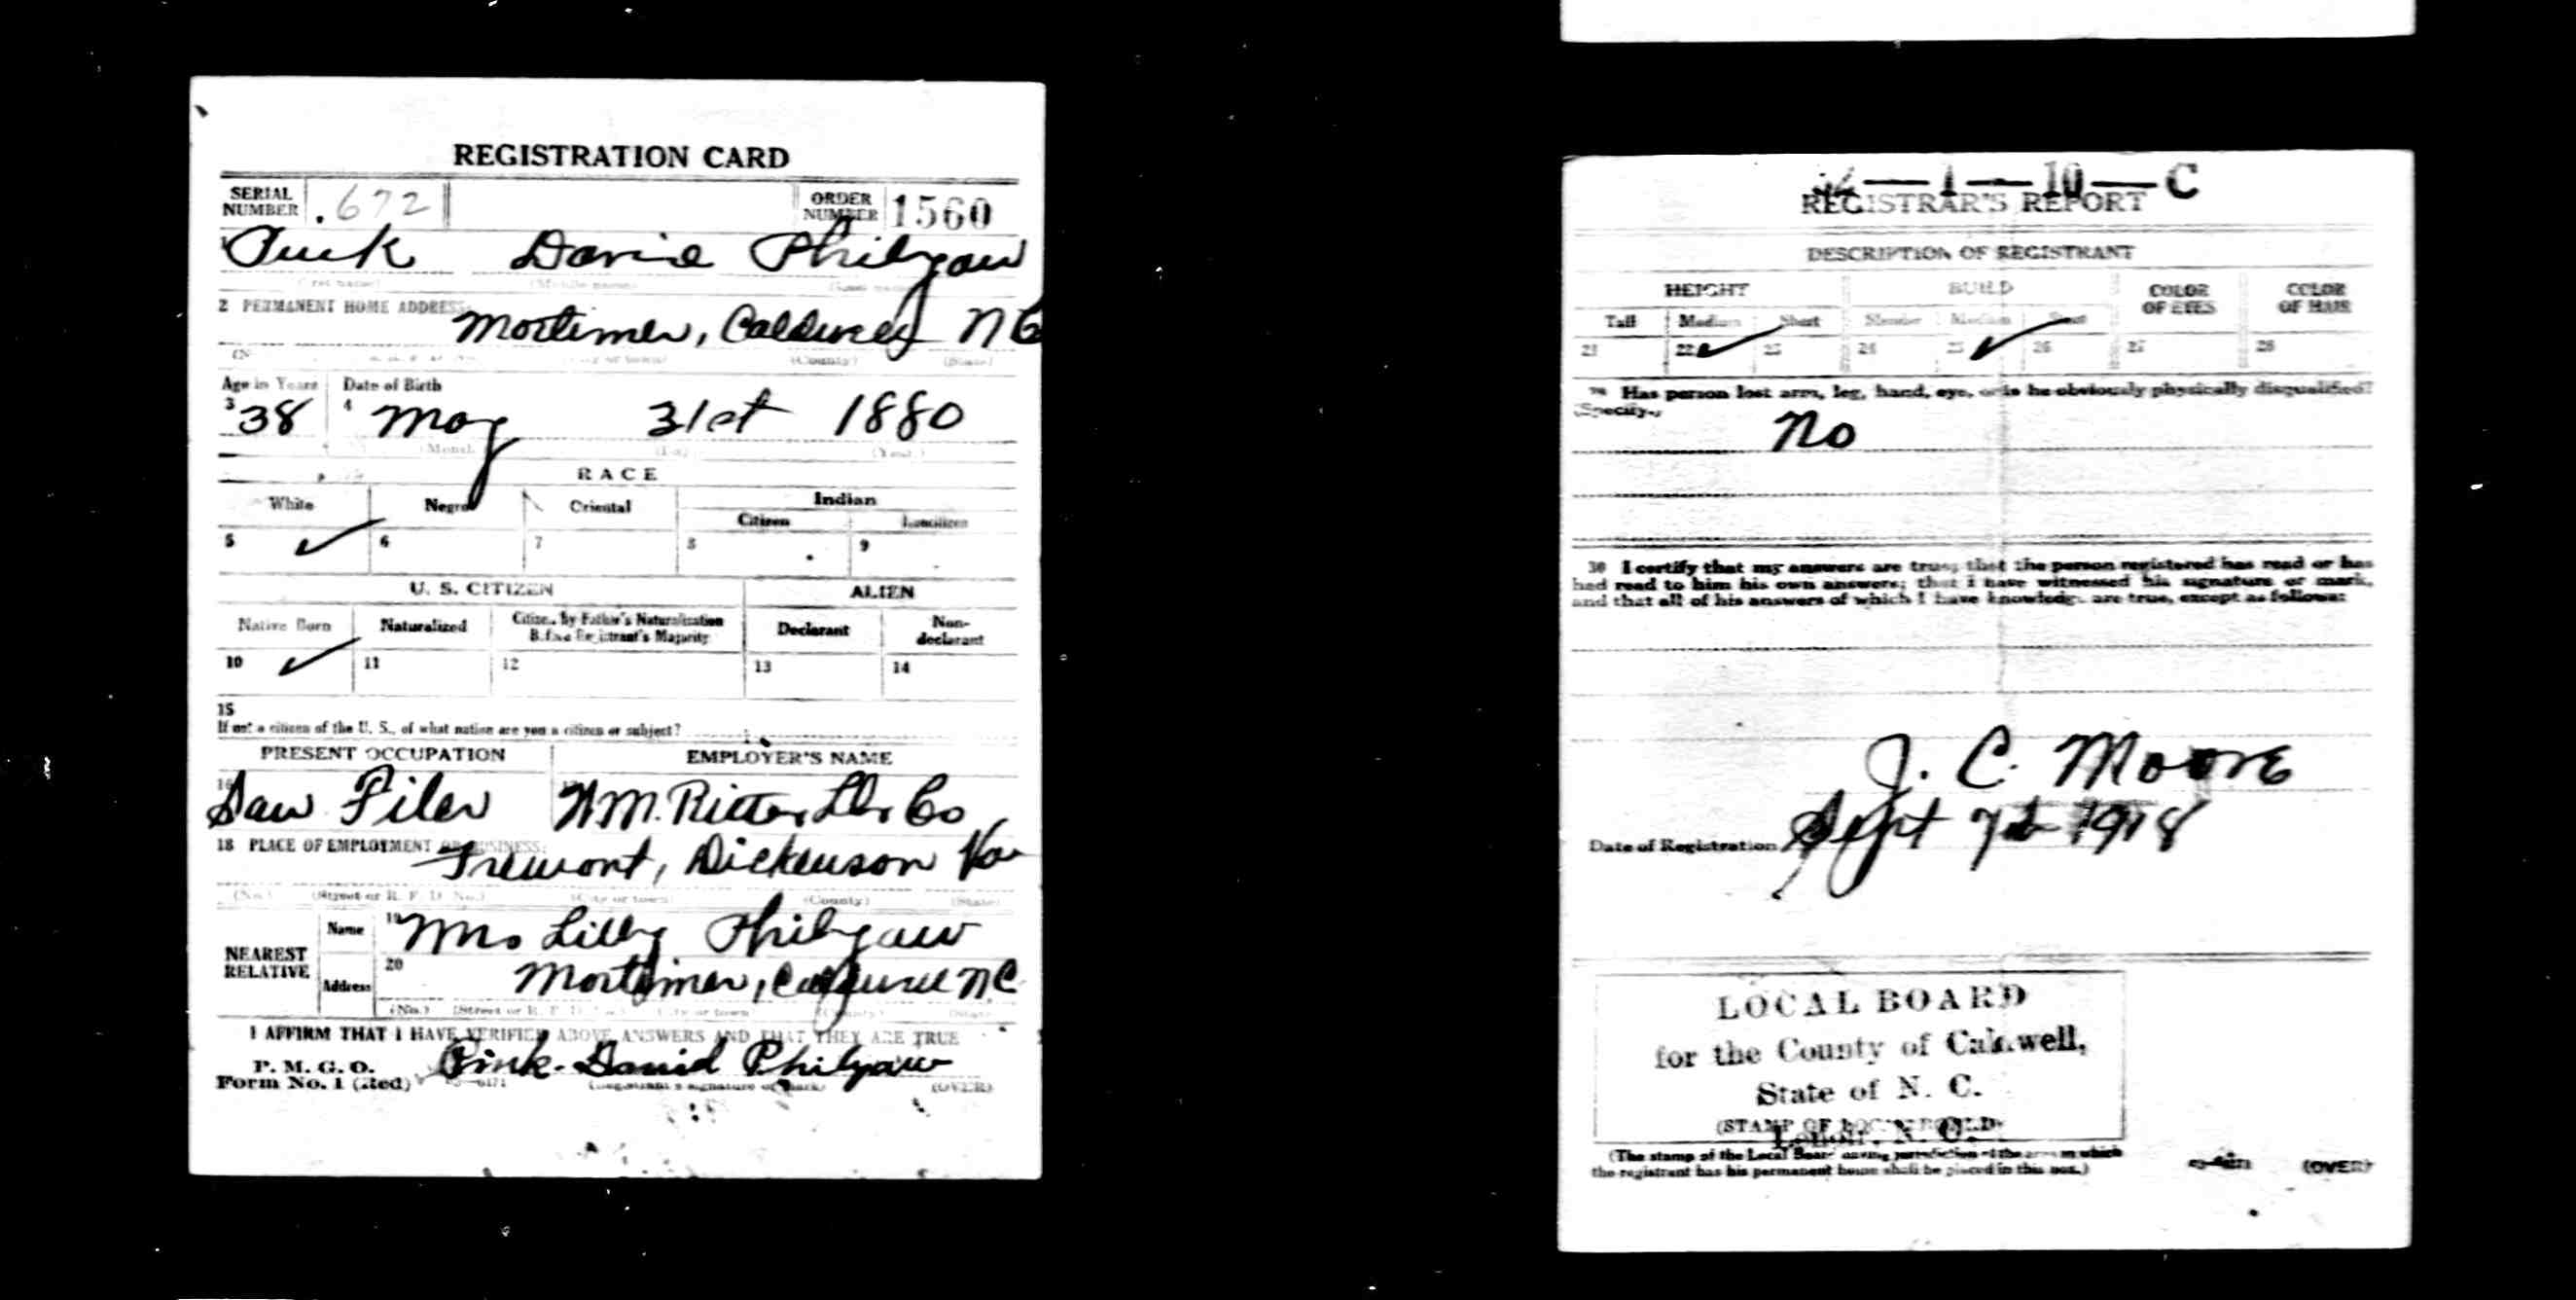 REGISTRATION CARD
SERIAL NUMBER 672 ORDER NUMBER 1560
Pink David Philyaw
(First name) (Middle name) (Last name)
2 PERMANENT HOME ADDRESS:
Mortimer, Caldwell NC
(County) (State)
Age in Years Date of Birth
3 38 4 May 31st 1880
(Month) (Day) (Year)
RACE
White Negro Oriental Indian
Citizen Noncitizen
5 6 7 8 9
U. S. CITIZEN ALIEN
Native Born Naturalized Citizen by Father's Naturalization Before Registrant's Majority Declarant Non-declarant
10 11 12 13 14
15
If not a citizen of the U. S., of what nation are you a citizen or subject?
PRESENT OCCUPATION EMPLOYER'S NAME
16 Saw Filer 17 W.M. Ritter Lbr Co
18 PLACE OF EMPLOYMENT OR BUSINESS:
Fremont, Dickenson Va
(No.) (Street or R. F. D. No.) (City or town) (County) (State)
NEAREST RELATIVE
Name 19 Mrs Lilly Philyaw
Address 20 Mortimer, NC
(No.) (Street or R. F. D. No.) (City or town) (County) (State)
I AFFIRM THAT I HAVE VERIFIED ABOVE ANSWERS AND THAT THEY ARE TRUE
P. M. G. O.
Form No. 1 (Red) Pink David Philyaw
(Registrant's signature or mark) (OVER)
1—10—C
REGISTRAR'S REPORT
DESCRIPTION OF REGISTRANT
HEIGHT BUILD COLOR OF EYES COLOR OF HAIR
Tall Medium Short Slender Medium Stout
21 22 23 24 25 26 27 28
29 Has person lost arm, leg, hand, eye, or is he obviously physically disqualified?
(Specify.)
No
30 I certify that my answers are true; that the person registered has read or has
had read to him his own answers; that I have witnessed his signature or mark,
and that all of his answers of which I have knowledge are true, except as follows:
J. C. Moore
Date of Registration Sept 7th 1918
LOCAL BOARD
for the County of Caldwell,
State of N. C.
(STAMP OF LOCAL BOARD)
Lenoir, N. C.
(The stamp of the Local Board having jurisdiction of the area in which
the registrant has his permanent home shall be placed in this box.)
(OVER)